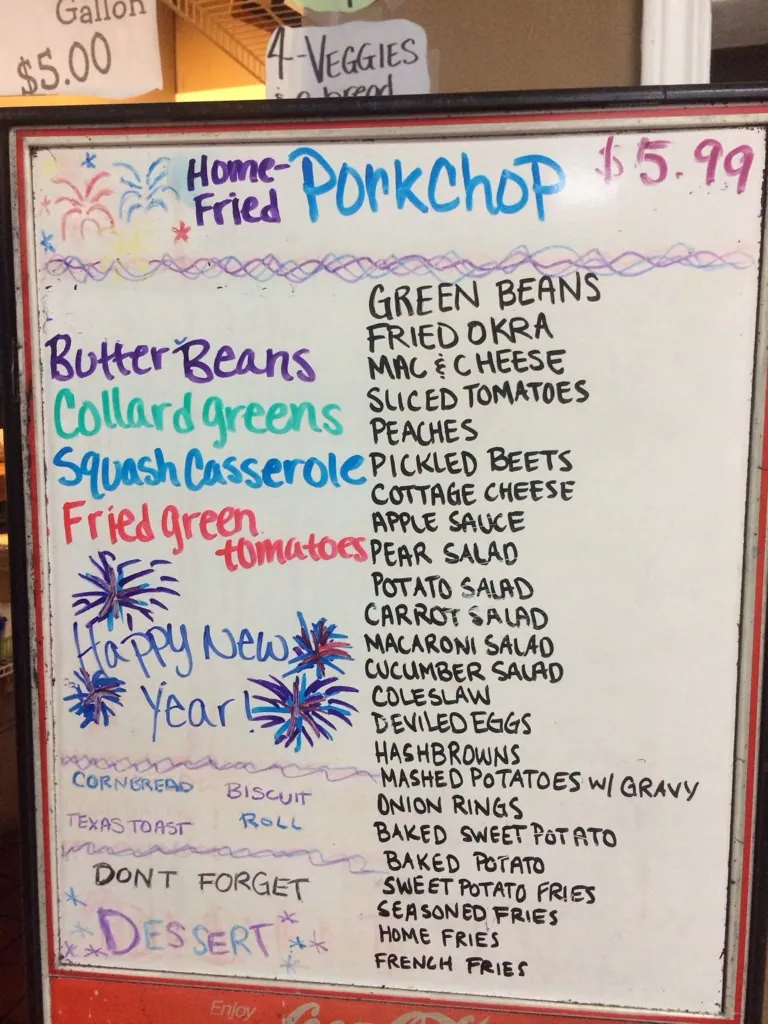 Gallon
$5.00
4-VEGGIES
bread
Home-Fried PorkChop $5.99
Butter Beans
Collard greens
Squash Casserole
Fried green
tomatoes
Happy New
Year!
CORNBREAD BISCUIT
TEXAS TOAST ROLL
DONT FORGET
DESSERT
GREEN BEANS
FRIED OKRA
MAC & CHEESE
SLICED TOMATOES
PEACHES
PICKLED BEETS
COTTAGE CHEESE
APPLE SAUCE
PEAR SALAD
POTATO SALAD
CARROT SALAD
MACARONI SALAD
CUCUMBER SALAD
COLESLAW
DEVILED EGGS
HASHBROWNS
MASHED POTATOES W/ GRAVY
ONION RINGS
BAKED SWEET POTATO
BAKED POTATO
SWEET POTATO FRIES
SEASONED FRIES
HOME FRIES
FRENCH FRIES
Enjoy
Coca-Cola